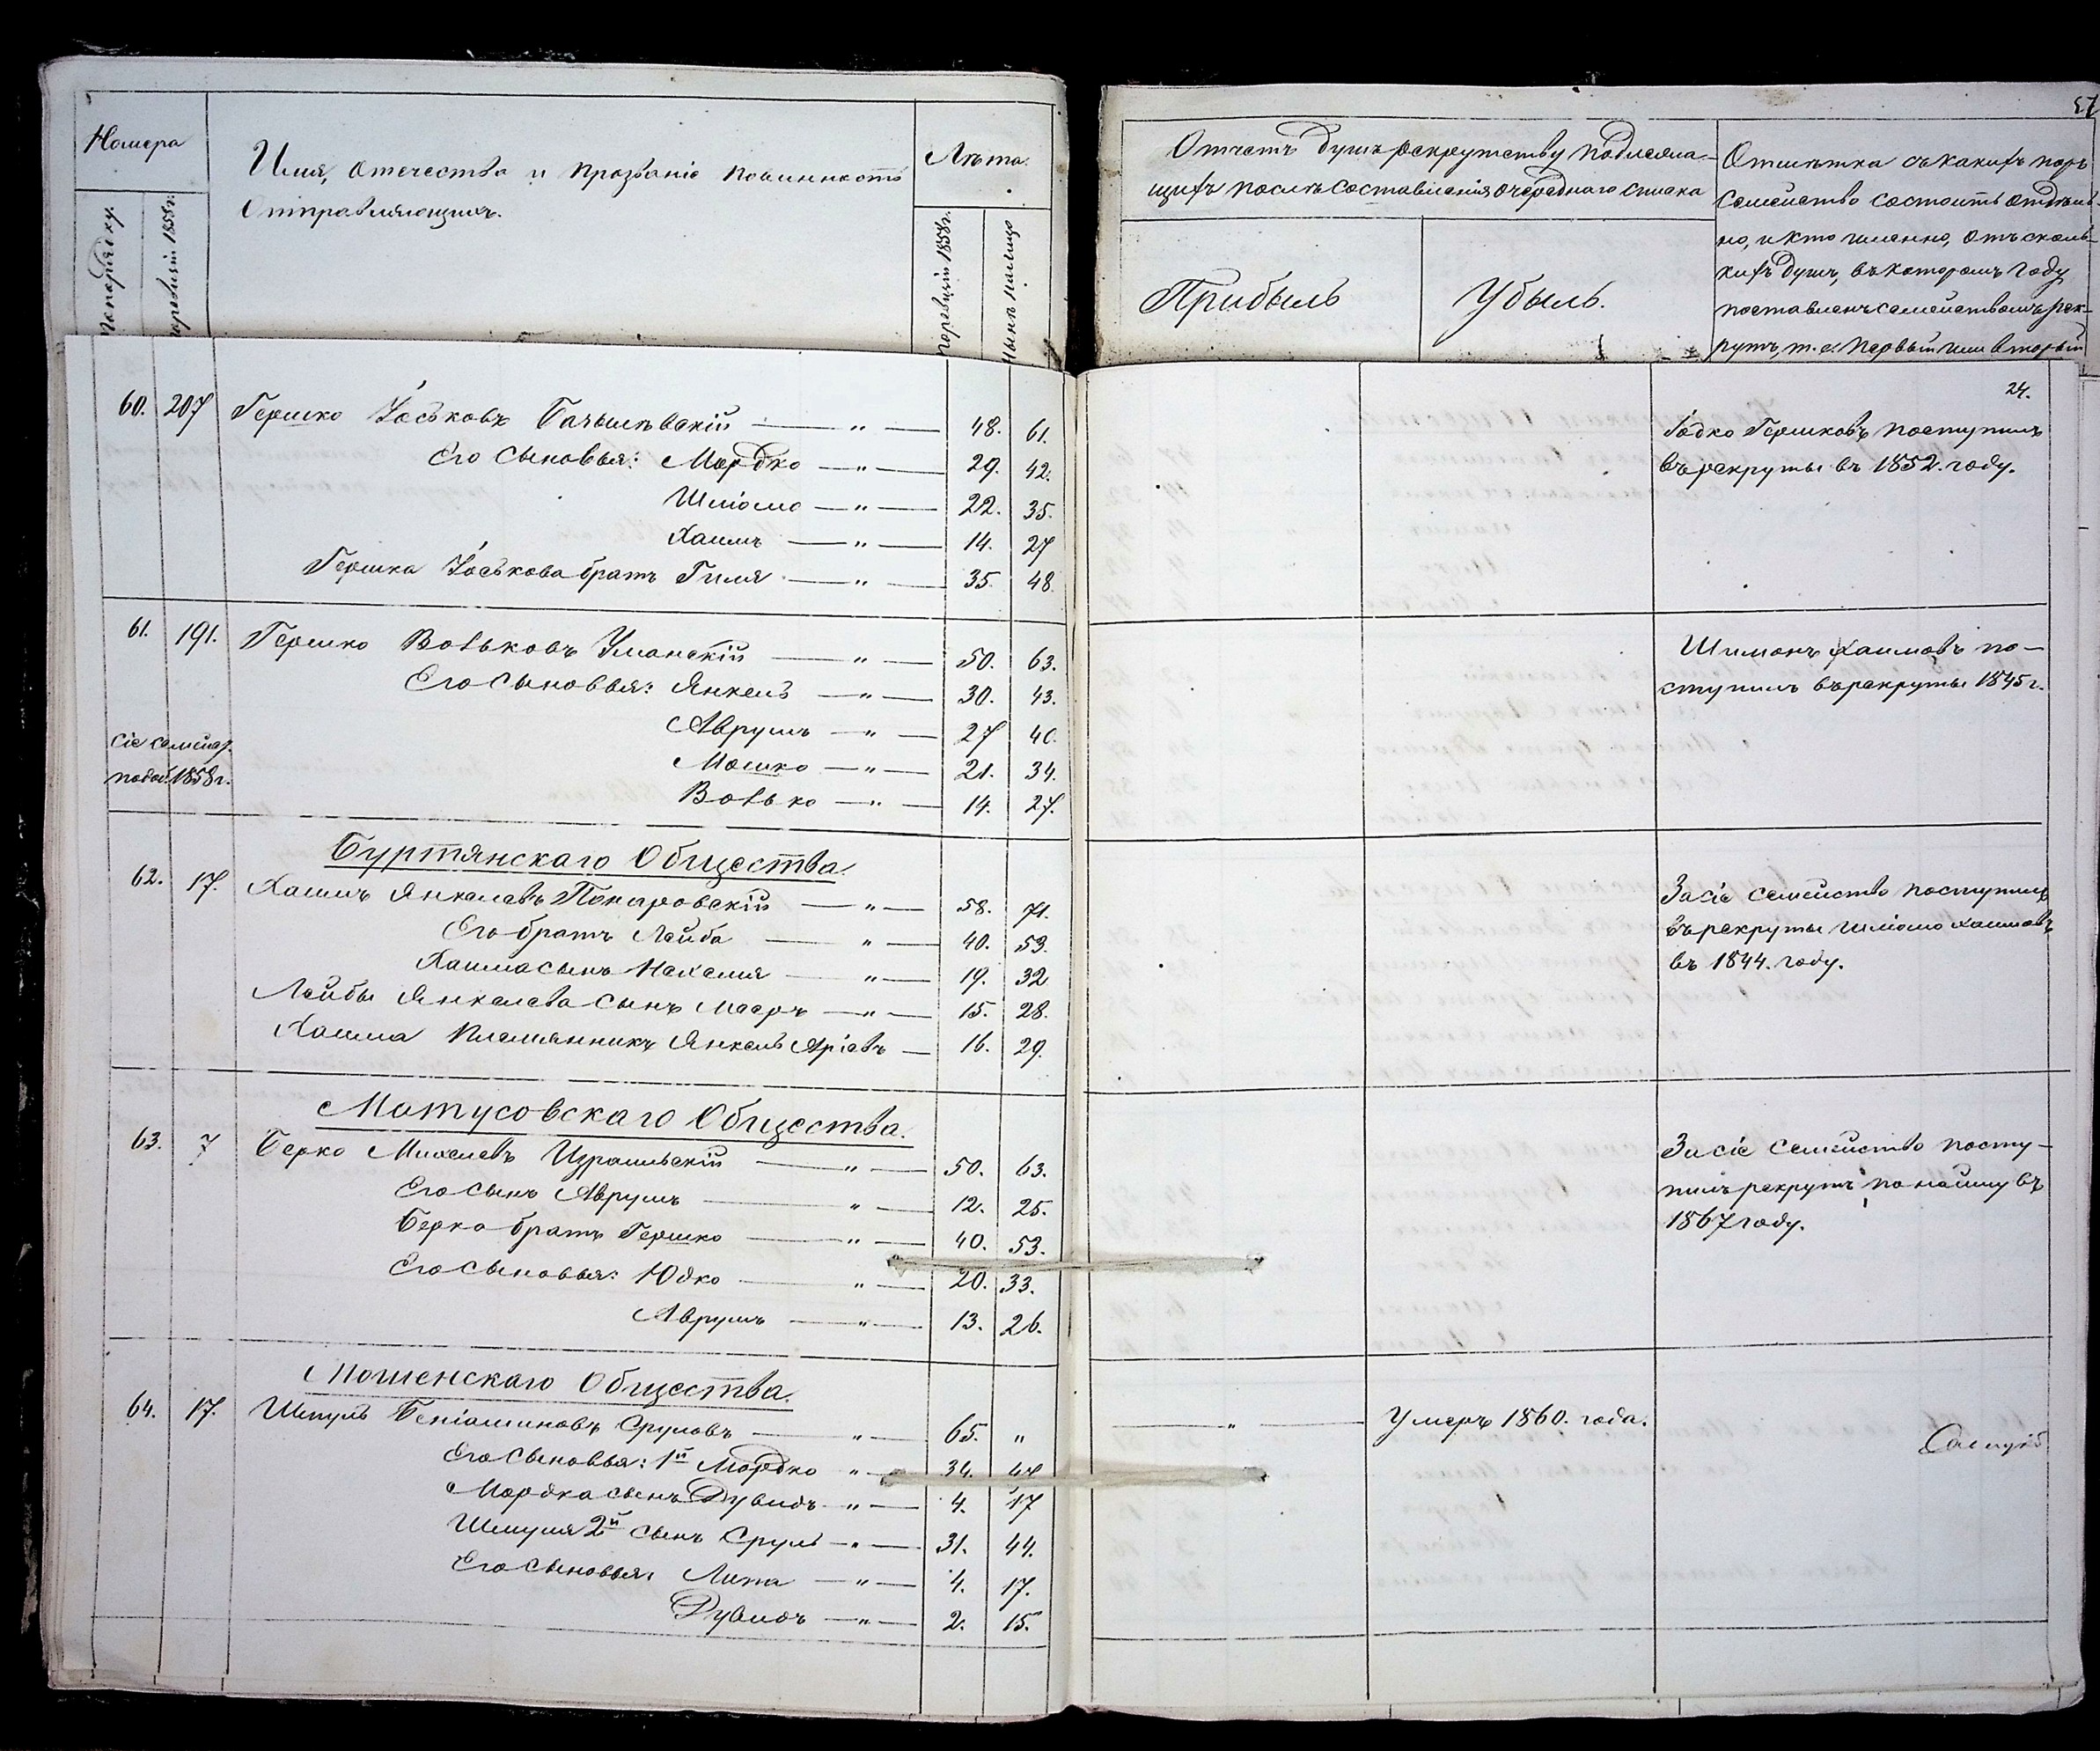 57
Номера
Имя, отечество и прозваніе повинность
Отправляющихъ.
Лѣта.
по порядку.
по ревизіи 1858 г.
по ревизіи 1858 г.
Нынѣ имѣющо
Отчетъ душъ рекрутству подлежа-
щихъ послѣ составленія очереднаго списка
Прибыль
Убыль.
Отмѣтка съ какихъ поръ
семейство состоитъ отдѣль-
но, и кто именно, отъ сколь-
кихъ душъ, въ которомъ году
поставленъ семействомъ рек-
рутъ, т. е. первый или вторый
24.
60. 207 Гершко Іоськовъ —„— 48. 61.
Его сыновья: Мордко —„— 29. 42.
Шліомо —„— 22. 35.
Хаимъ —„— 14. 27
Гершка Іоськова братъ Гиля —„— 35. 48
Іодко Гершковъ поступилъ
въ рекруты въ 1852. году.
61. 191. Гершко Вольковъ Уманскій —„— 50. 63.
Его сыновья: Янкель —„— 30. 43.
Аврумъ —„— 27 40.
Мошко —„— 21. 34.
Волько —„— 14. 27.
Сіе семейст.
1858 г.
Шимонъ Хаимовъ по-
ступилъ въ рекруты 1845 г.
Буртянскаго Общества.
62. 17. Хаимъ Янкелевъ —„— 58. 71.
Его братъ Лейба —„— 40. 53.
Хаима сынъ Нахемя —„— 19. 32
Лейбы Янкелева сынъ Меерь —„— 15. 28.
Хаима племянникъ Янкель Аріевъ — 16. 29.
За сіе семейство поступилъ
въ рекруты Шліомо Хаимовъ
въ 1844. году.
Матусовскаго Общества.
63. 7 Берко Михелевъ Израильскій —„— 50. 63.
Его сынъ Аврумъ —„— 12. 25.
Берка братъ Гершко —„— 40. 53.
Его сыновья: Юдко —„— 20. 33.
Аврумъ —„— 13. 26.
За сіе семейство посту-
пилъ рекрутъ по найму въ
1867 году.
Мошенскаго Общества.
64. 17. Шмуль Беніаминовъ Сруловъ —„— 65. „ —„— Умеръ 1860. года.
Его сыновья: 1й Мордко „— 34. 47
Мордка сынъ Дувидъ „— 4. 17
Шмуля 2й сынъ Сруль —„— 31. 44.
Его сыновья: Липа —„— 4. 17.
Дувидъ —„— 2. 15.